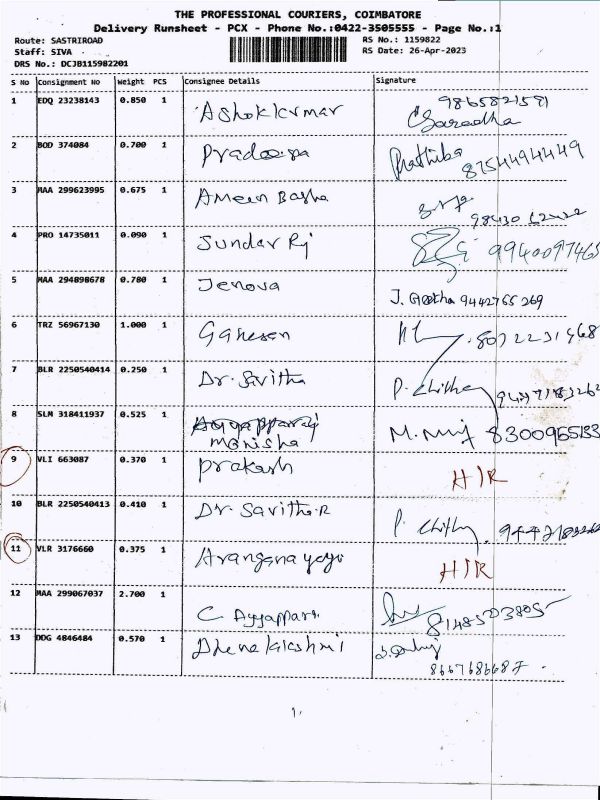 THE PROFESSIONAL COURIERS, COIMBATORE
Delivery Runsheet - PCX - Phone No.:0422-3505555 - Page No.:1
Route: SASTRIROAD RS No.: 1159822
Staff: SIVA RS Date: 26-Apr-2023
DRS No.: DCJB115982201
S No Consignment No Weight PCS Consignee Details Signature
1 EDQ 23238143 0.850 1 Ashokkumar 9865821581
Saradha
2 BOD 374084 0.700 1 Pradeepa Prathiba 8754494449
3 MAA 299623995 0.675 1 Ameen Basha
4 PRO 14735011 0.090 1 Sundar Rj 9940097465
5 MAA 294898678 0.780 1 Jenova J. Geetha 9442765269
6 TRZ 56967130 1.000 1 Ganesan
7 BLR 2250540414 0.250 1 Dr. Savitha P.
8 SLM 318411937 0.525 1 Monisha M.
9 VLI 663087 0.370 1 Prakash H/R
10 BLR 2250540413 0.410 1 Dr. Savitha.R P.
11 VLR 3176660 0.375 1 H/R
12 MAA 299067037 2.700 1 C. Ayyappan
13 DDG 4846484 0.570 1 Dhenalakshmi
1.